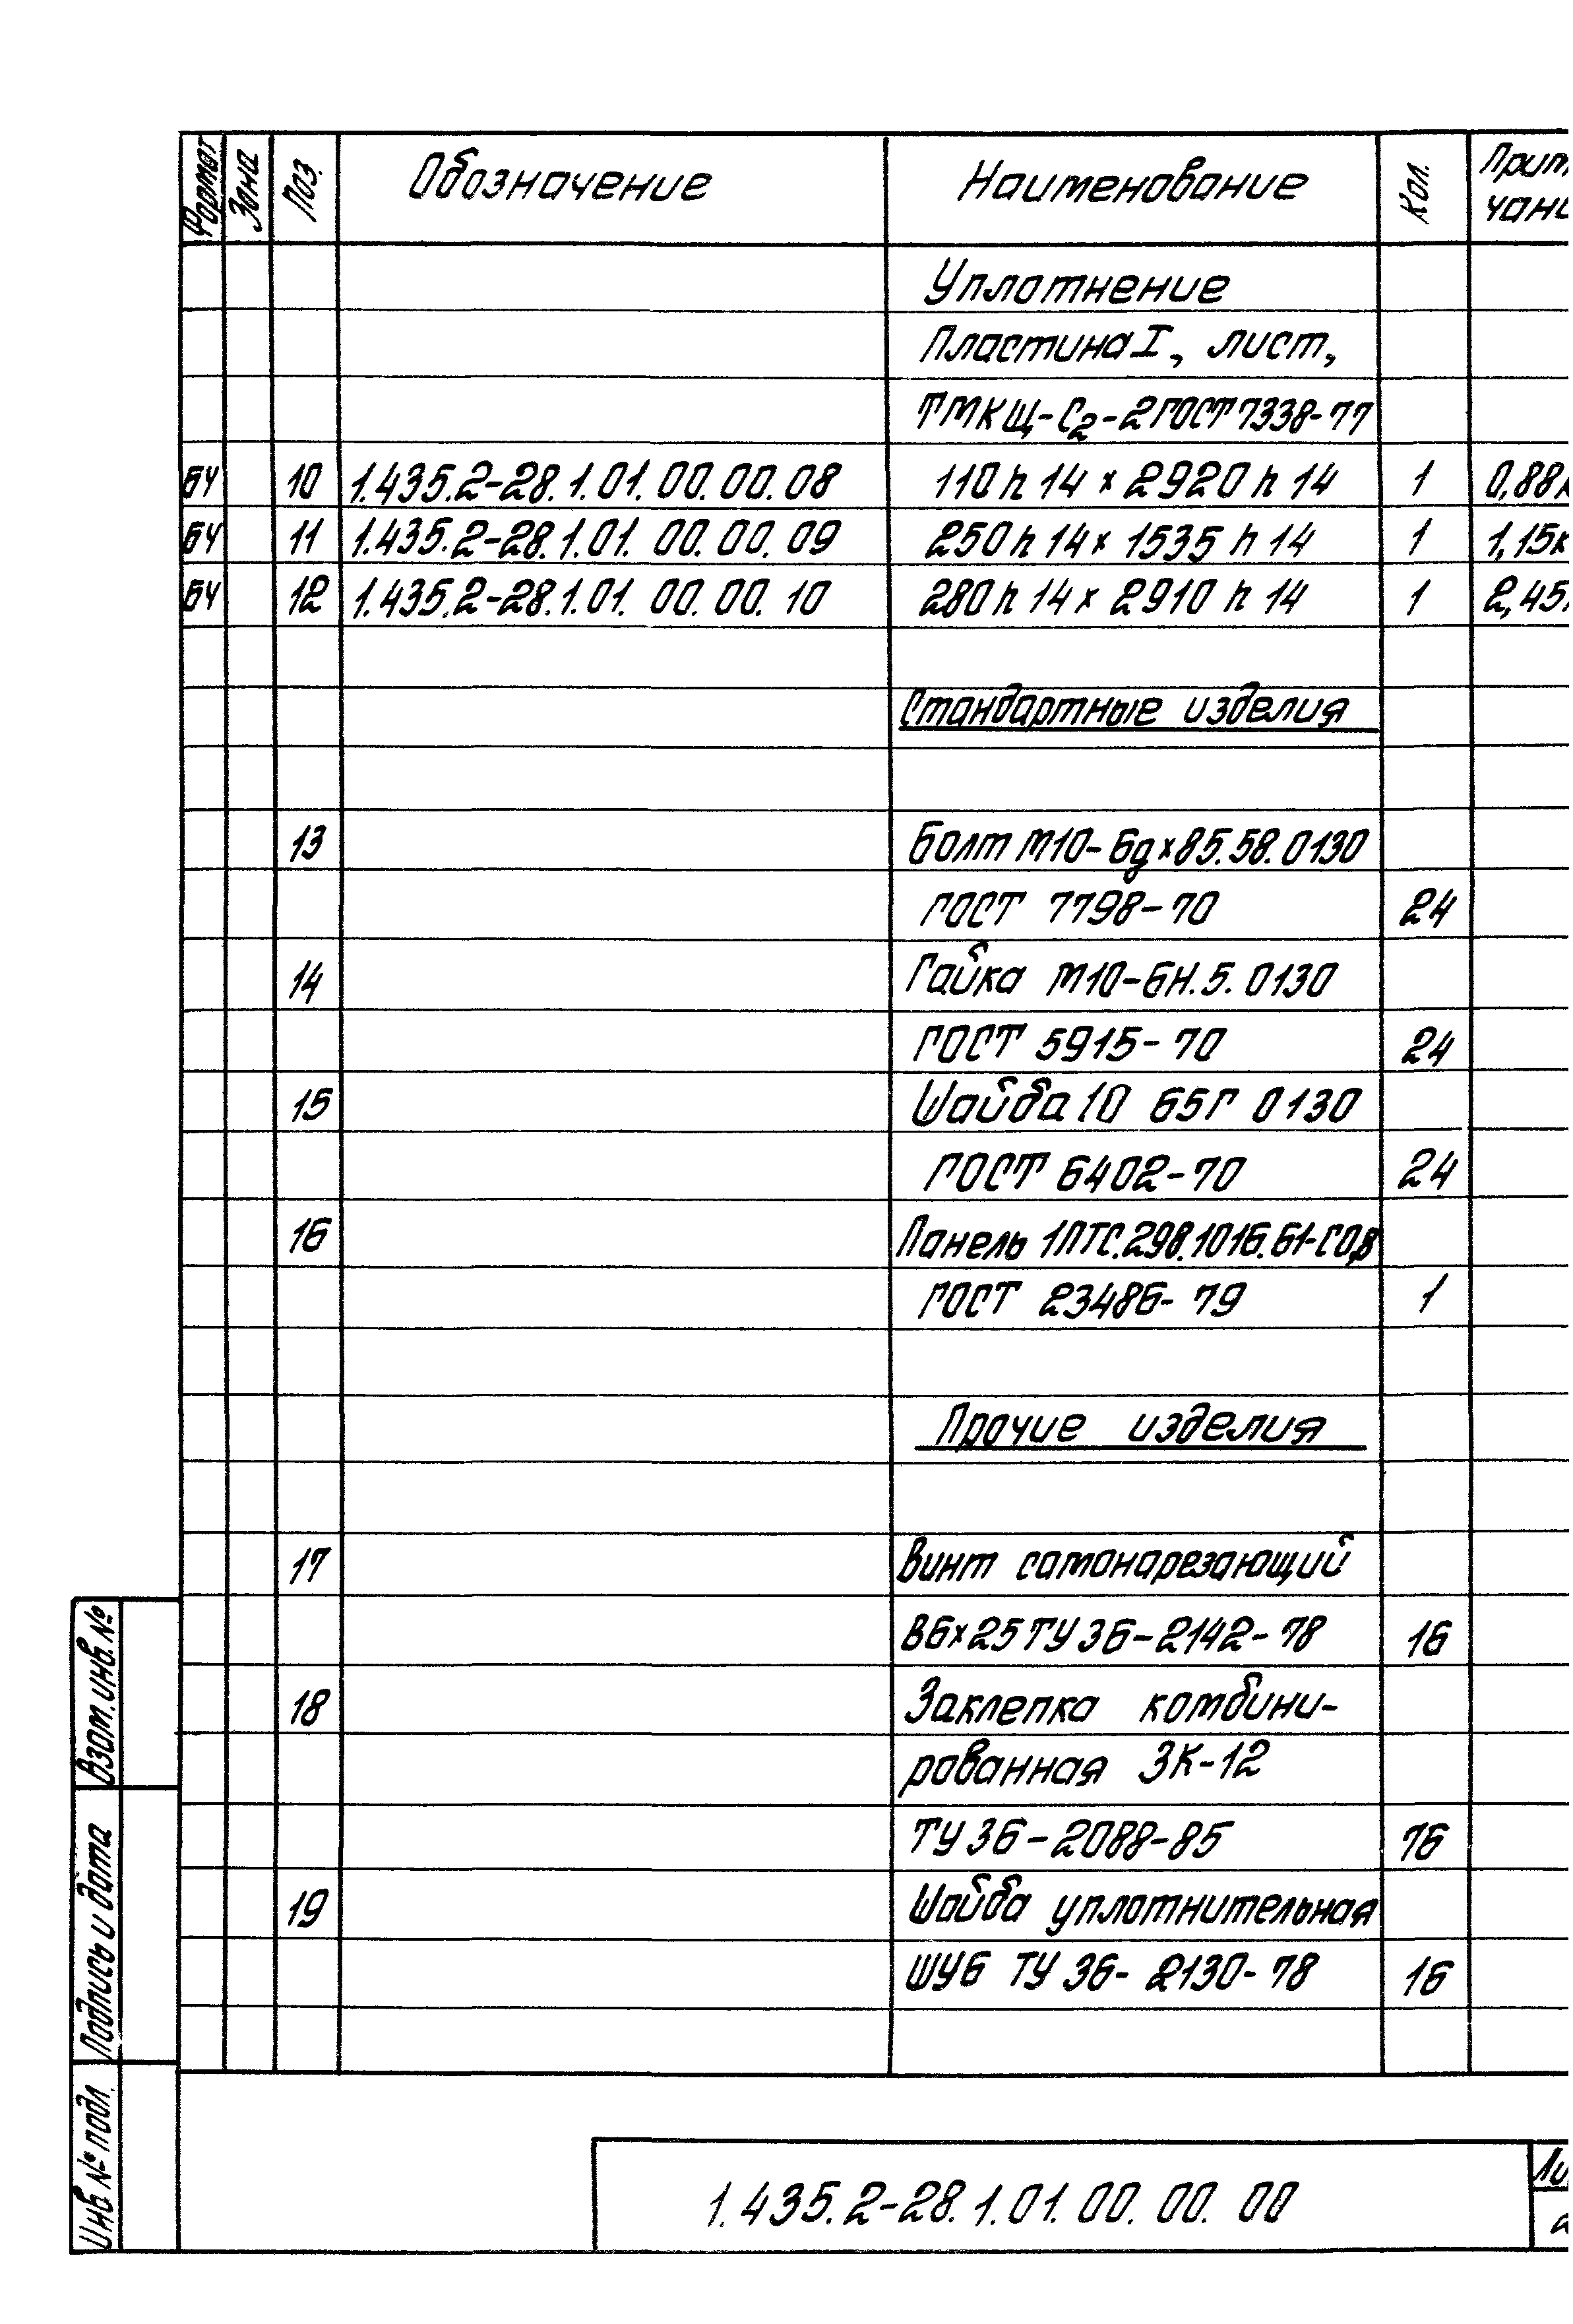 Формат Зона Поз. Обозначение Наименование Кол. Приме
чани
Уплотнение
Пластина I, лист,
ТМКЩ-С2-2 ГОСТ 7338-77
БЧ 10 1.435.2-28.1.01.00.00.08 110 h 14 × 2920 h 14 1 0,88к
БЧ 11 1.435.2-28.1.01.00.00.09 250 h 14 × 1535 h 14 1 1,15к
БЧ 12 1.435.2-28.1.01.00.00.10 280 h 14 × 2910 h 14 1 2,45
Стандартные изделия
13 Болт М10-6g×85.58.0130
ГОСТ 7798-70 24
14 Гайка М10-6Н.5.0130
ГОСТ 5915-70 24
15 Шайба 10 65Г 0130
ГОСТ 6402-70 24
16 Панель 1ПТС.298.1016.61-С0,8
ГОСТ 23486-79 1
Прочие изделия
17 Винт самонарезающий
В6×25 ТУ 36-2142-78 16
18 Заклепка комбини-
рованная ЗК-12
ТУ 36-2088-85 76
19 Шайба уплотнительная
ШУ6 ТУ 36-2130-78 16
Взам. инв. №
Подпись и дата
Инв № подл.
1.435.2-28.1.01.00.00.00
Ли